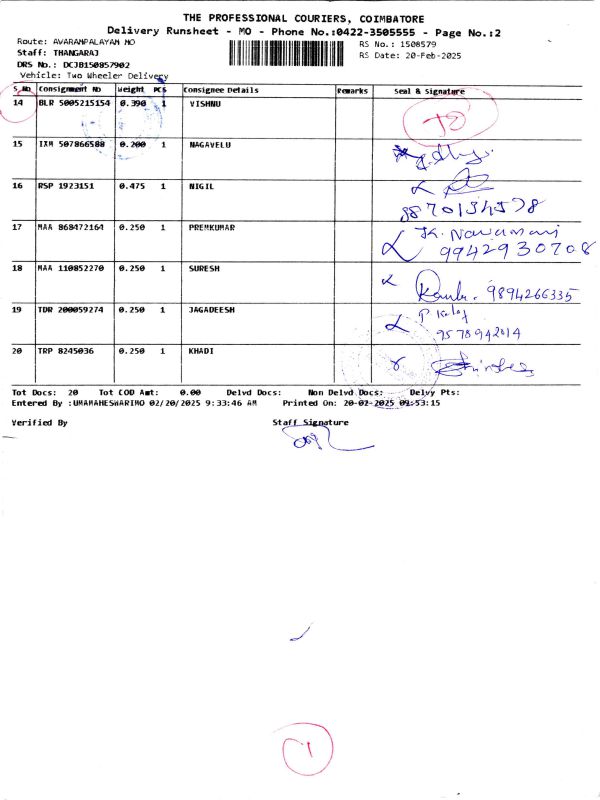 THE PROFESSIONAL COURIERS, COIMBATORE
Delivery Runsheet - MO - Phone No.:0422-3505555 - Page No.:2
Route: AVARAMPALAYAM MO RS No.: 1508579
Staff: THANGARAJ RS Date: 20-Feb-2025
DRS No.: DCJB150857902
Vehicle: Two Wheeler Delivery
S.No Consignment No Weight PCS Consignee Details Remarks Seal & Signature
14 BLR 5005215154 0.390 1 VISHNU
15 IXM 507866588 0.200 1 NAGAVELU
16 RSP 1923151 0.475 1 NIGIL
17 MAA 868472164 0.250 1 PREMKUMAR
9942930708
18 MAA 110852270 0.250 1 SURESH 9894266335
19 TDR 200059274 0.250 1 JAGADEESH
9578942014
20 TRP 8245036 0.250 1 KHADI
Tot Docs: 20 Tot COD Amt: 0.00 Delvd Docs: Non Delvd Docs: Delvy Pts:
Entered By :UMAMAHESWARIMO 02/20/2025 9:33:46 AM Printed On: 20-02-2025 09:53:15
Verified By Staff Signature